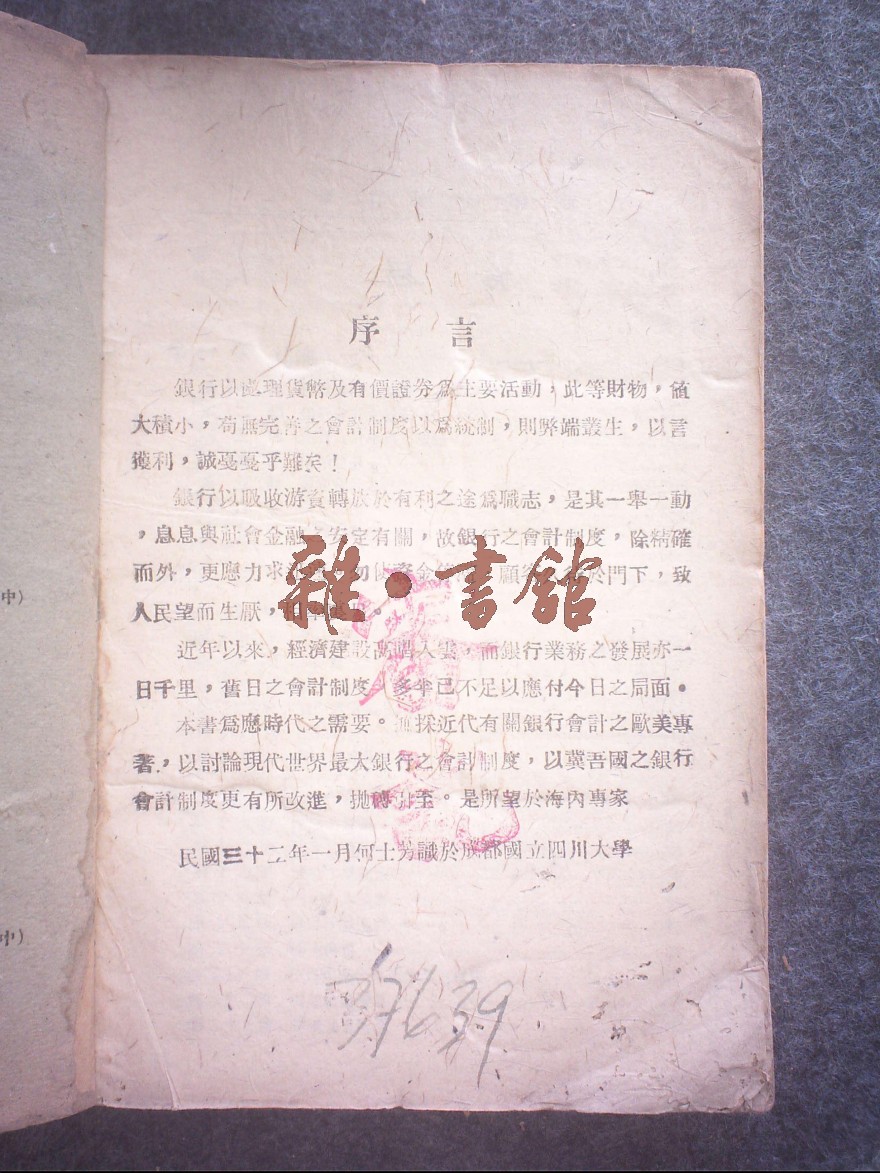 序言
銀行以處理貨幣及有價證券爲主要活動,此等財物,值
大積小,苟無完善之會計制度以爲統制,則弊端叢生,以言
獲利,誠戞戞乎難矣!
銀行以吸收游資轉放於有利之途爲職志,是其一舉一動
,息息與社會金融之安定有關,故銀行之會計制度,除精確
而外,更應力求 門下,致
人民望而生厭,
近年以來,經濟建設高唱入雲,而銀行業務之發展亦一
日千里,舊日之會計制度,多半已不足以應付今日之局面。
本書爲應時代之需要。採近代有關銀行會計之歐美專
著,以討論現代世界最大銀行之會計制度,以冀吾國之銀行
會計制度更有所改進,拋磚引玉。是所望於海內專家
民國三十二年一月何士芳識於成都國立四川大學
雜·書館
37639
中)
中)